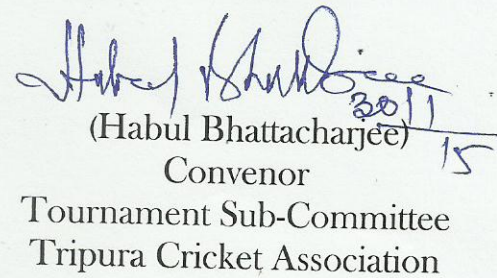 Habul Bhattacharjee
30/11
15
(Habul Bhattacharjee)
Convenor
Tournament Sub-Committee
Tripura Cricket Association